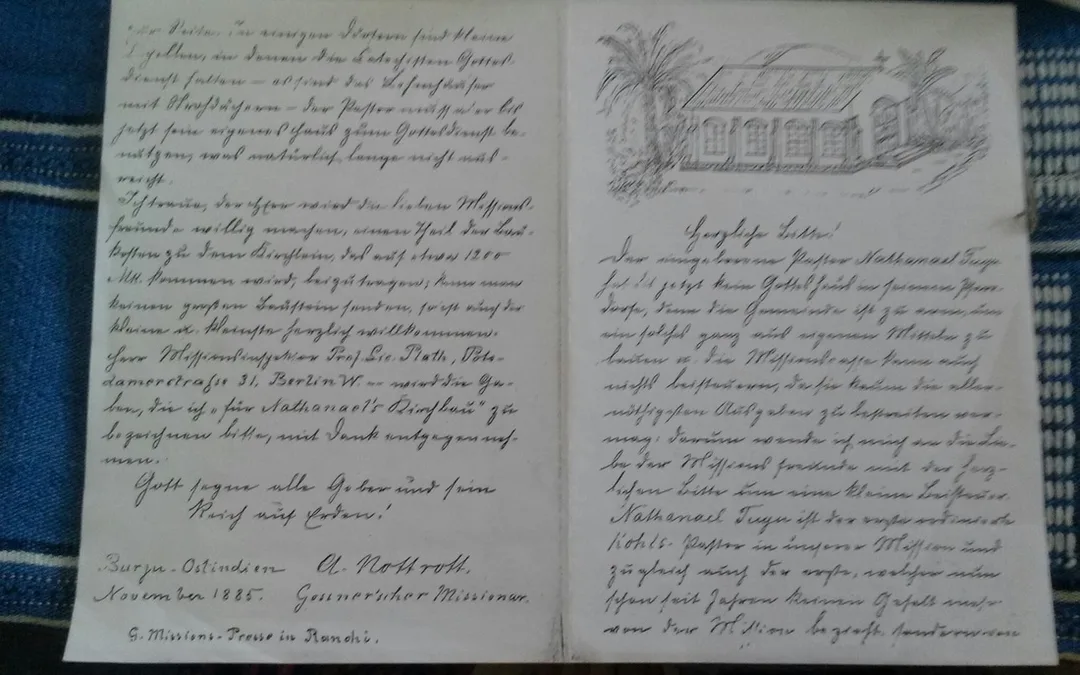 der Seite. In einigen Dörfern sind kleine
Kapellen, in denen die Katechisten Gottes-
dienst halten – es sind das Lehmhäuser
mit Strohdächern – der Pastor muss aber bis
jetzt sein eigenes Haus zum Gottesdienst be-
nützen, was natürlich lange nicht aus-
reicht.
Ich traue, der Herr wird die lieben Missions-
freunde willig machen, einen Theil der Bau-
kosten zu dem Kirchlein, das auf etwa 1200
Mk. kommen wird, beizutragen; kann man
keinen großen Baustein senden, so ist auch der
kleine u. kleinste herzlich willkommen.
Herr Missionsinspektor Prof. Lic. Plath, Pots-
damerstraße 31, Berlin W. – wird die Ga-
ben, die ich „für Nathanael's Kirchbau" zu
bezeichnen bitte, mit Dank entgegen neh-
men.
Gott segne alle Geber und sein
Reich auf Erden!
Burju-Ostindien A. Nottrott.
November 1885. Gossner'scher Missionar.
G. Missions-Presse in Ranchi.
Herzliche Bitte!
Der eingeborene Pastor Nathanael Tuyu
hat bis jetzt kein Gotteshaus in seinem Pfarr-
dorfe, denn die Gemeinde ist zu arm, um
ein solches ganz aus eigenen Mitteln zu
bauen u. die Missionscasse kann auch
nichts beisteuern, da sie kaum die aller-
nöthigsten Ausgaben zu bestreiten ver-
mag; darum wende ich mich an die Lie-
be der Missionsfreunde mit der herz-
lichen Bitte um eine kleine Beisteuer.
Nathanael Tuyu ist der erste ordinierte
Kohls-Pastor in unserer Mission und
zugleich auch der erste, welcher nun
schon seit Jahren keinen Gehalt mehr
von der Mission bezieht, sondern von